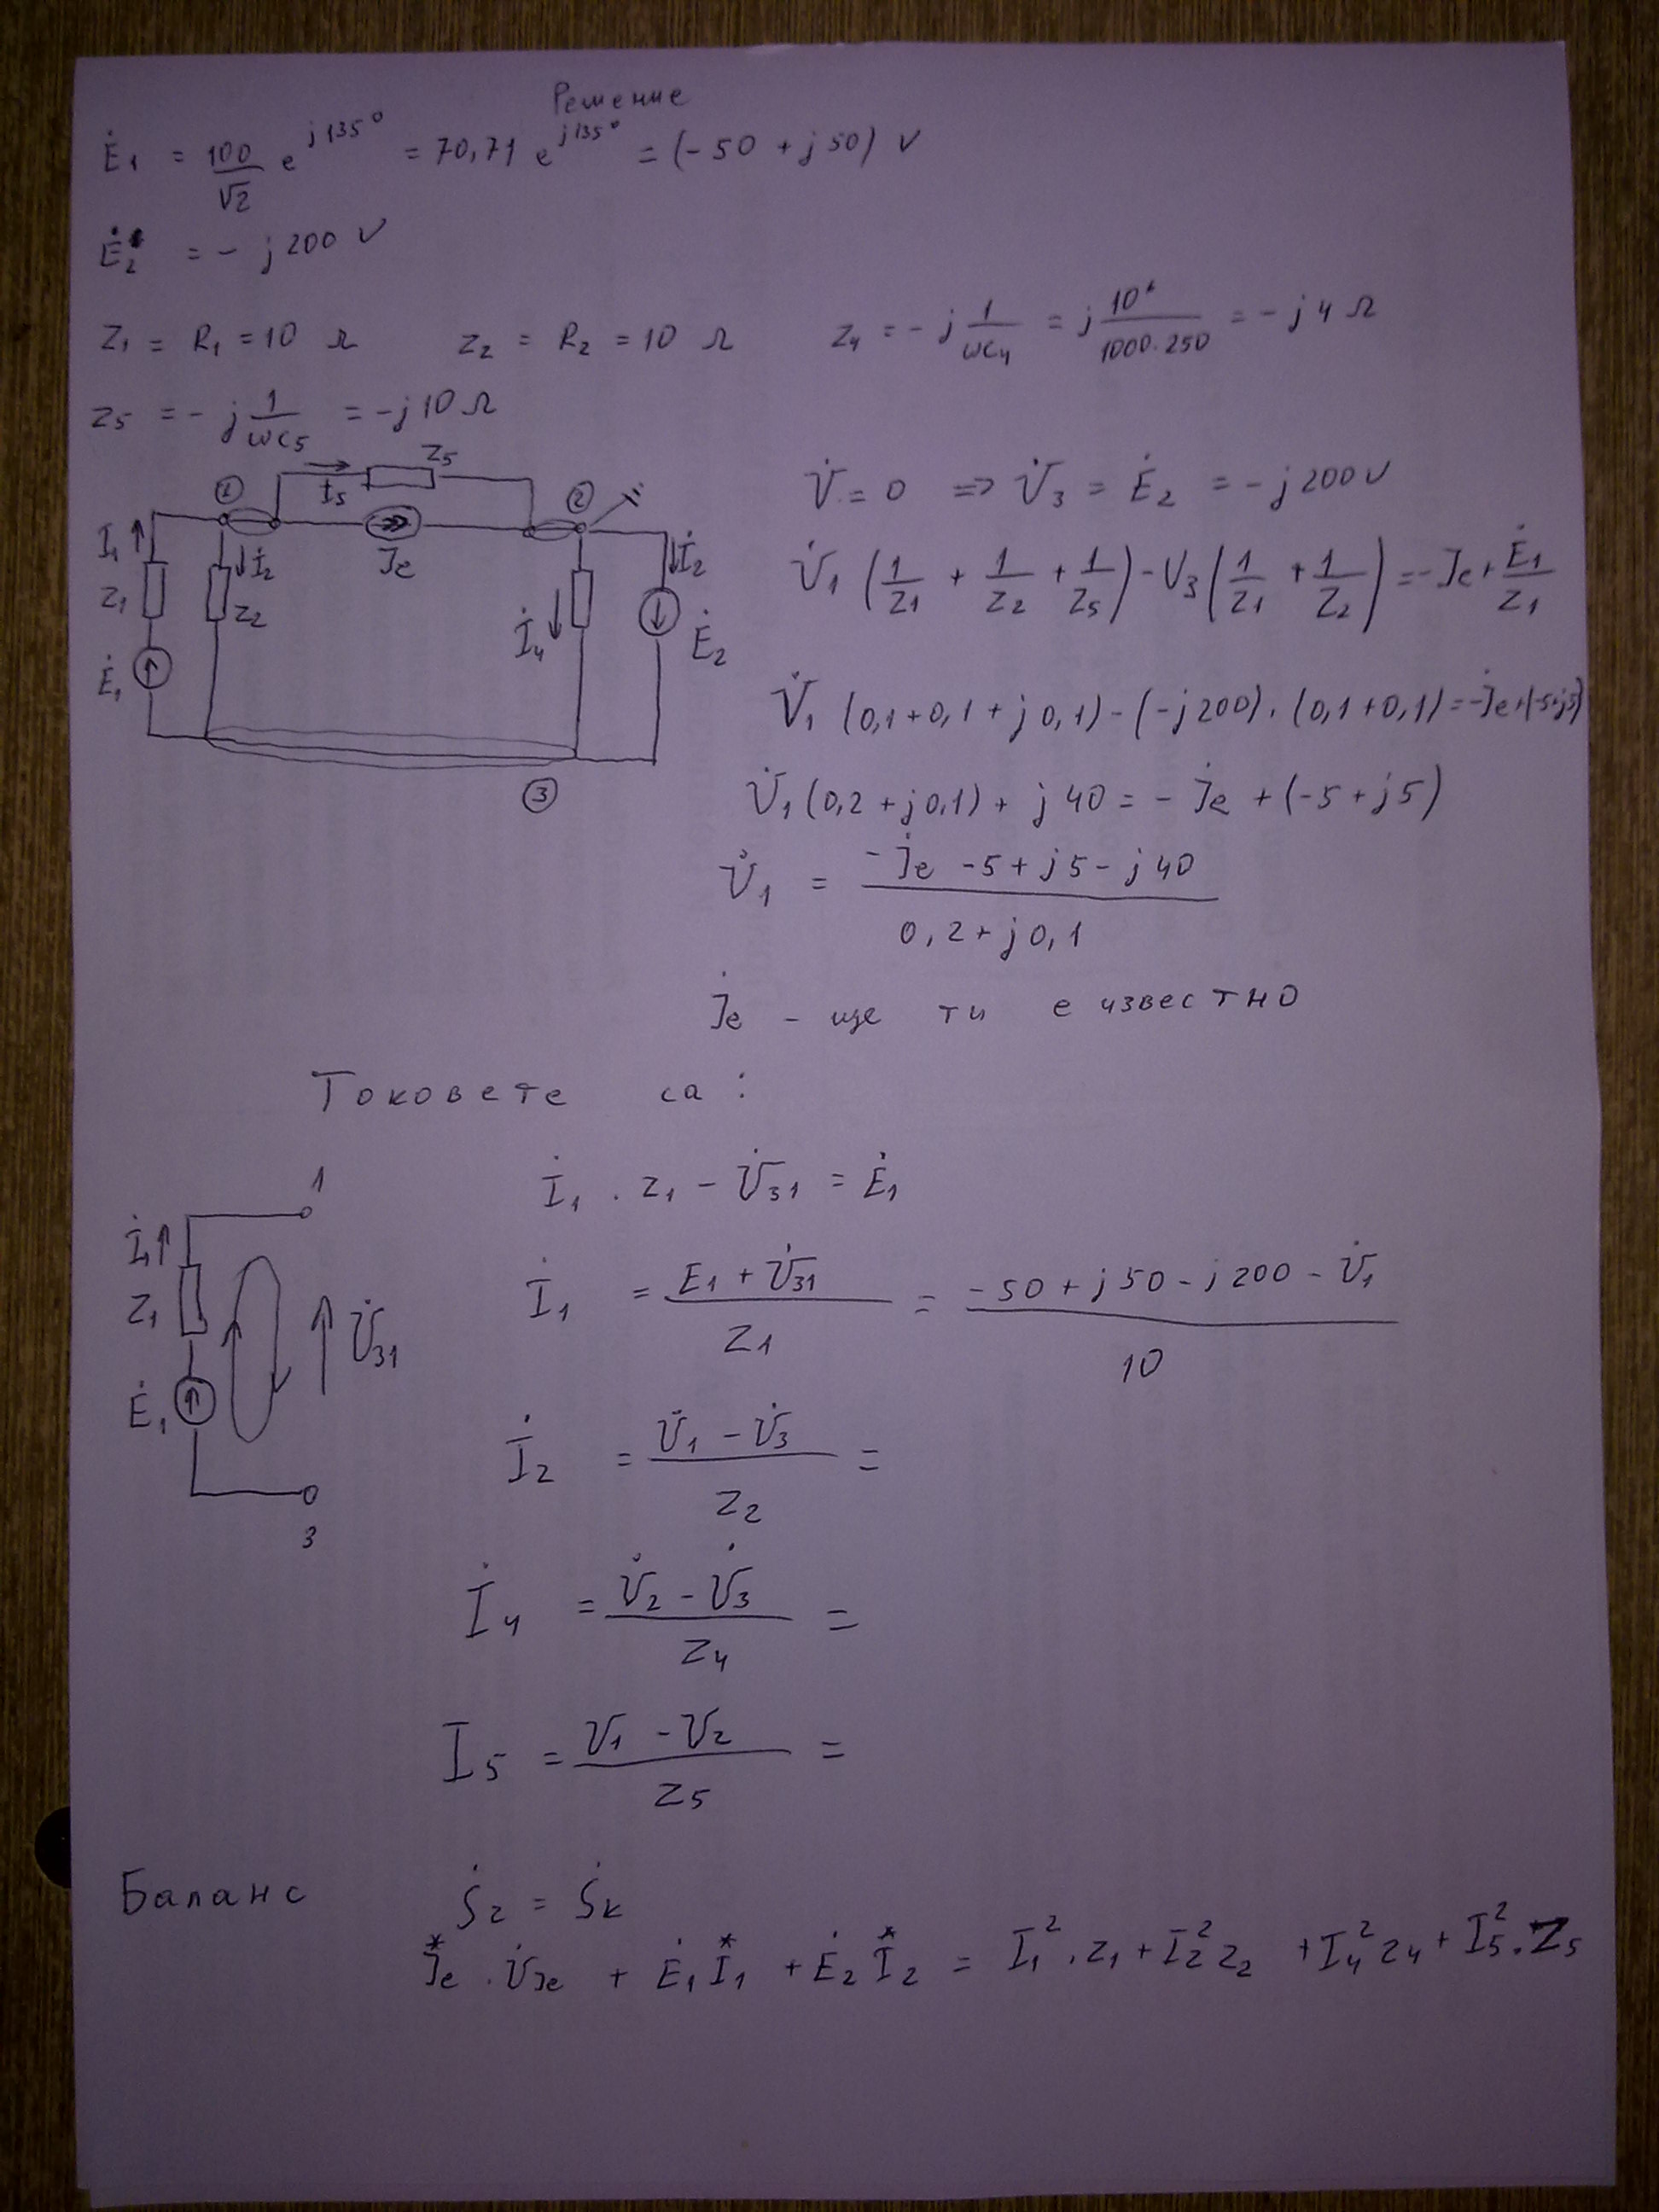 Решение
Ė1 = 100/√2 e^j135° = 70,71 e^j135° = (-50 + j50) V
Ė2 = - j200 V
Z1 = R1 = 10 Ω   Z2 = R2 = 10 Ω   Z4 = - j 1/ωC4 = j /1000.250 = - j4 Ω
Z5 = - j 1/ωC5 = -j10 Ω
① İ5 Z5 ②
I1 Z1 İ2 Z2 Je İ4 İ2 Ė2
Ė1
③
V̇ = 0 => V̇3 = Ė2 = -j200V
V̇1 (1/Z1 + 1/Z2 + 1/Z5) - V3 (1/Z1 + 1/Z2) = -Je + Ė1/Z1
V̇1 (0,1+0,1+j0,1) - (-j200). (0,1+0,1) = -J̇e+(-5+j5)
V̇1 (0,2 + j0,1) + j40 = - J̇e + (-5 + j5)
V̇1 = (-J̇e -5 + j5 - j40)/(0,2 + j0,1)
J̇e - ще ти е известно
Токовете са :
1
İ1 . Z1 - V̇31 = Ė1
İ1 Z1 Ė1 V̇31
İ1 = (E1 + V̇31)/Z1 = (-50 + j50 - j200 - V̇1)/10
İ2 = (V̇1 - V̇3)/Z2 =
3
İ4 = (V̇2 - V̇3)/Z4 =
I5 = (V1 - V2)/Z5 =
Баланс Ṡ2 = Ṡk
J*e . V̇Je + Ė1 I*1 + Ė2 I*2 = I1² . Z1 + I2² Z2 + I4² Z4 + I5² . Z5